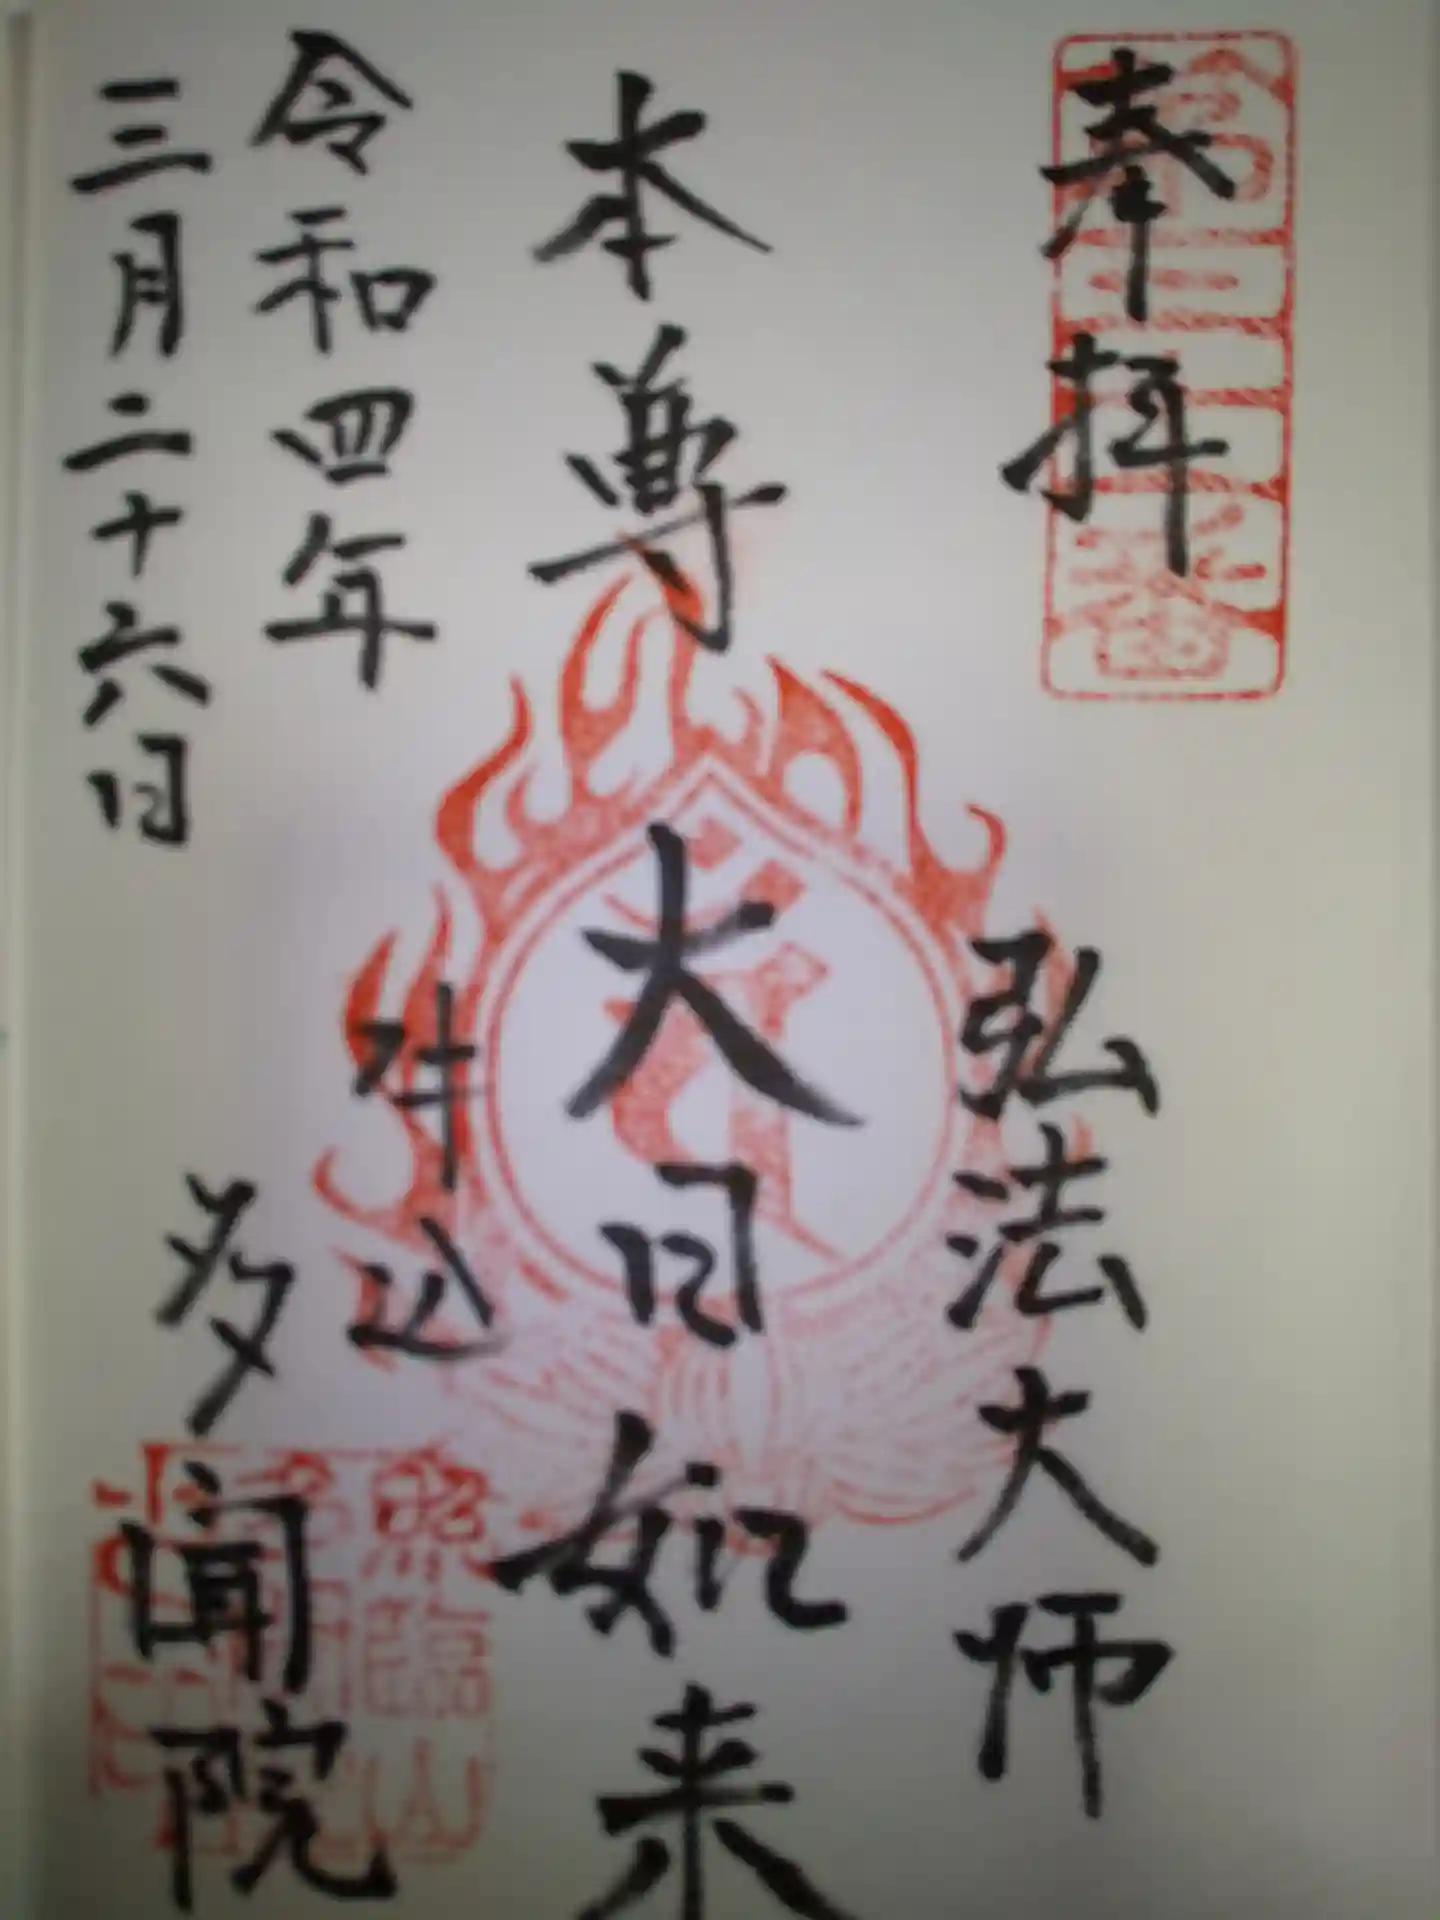 奉拝
弘法大師
本尊
大日如来
令和四年
三月二十六日
牛込
多聞院
照臨山